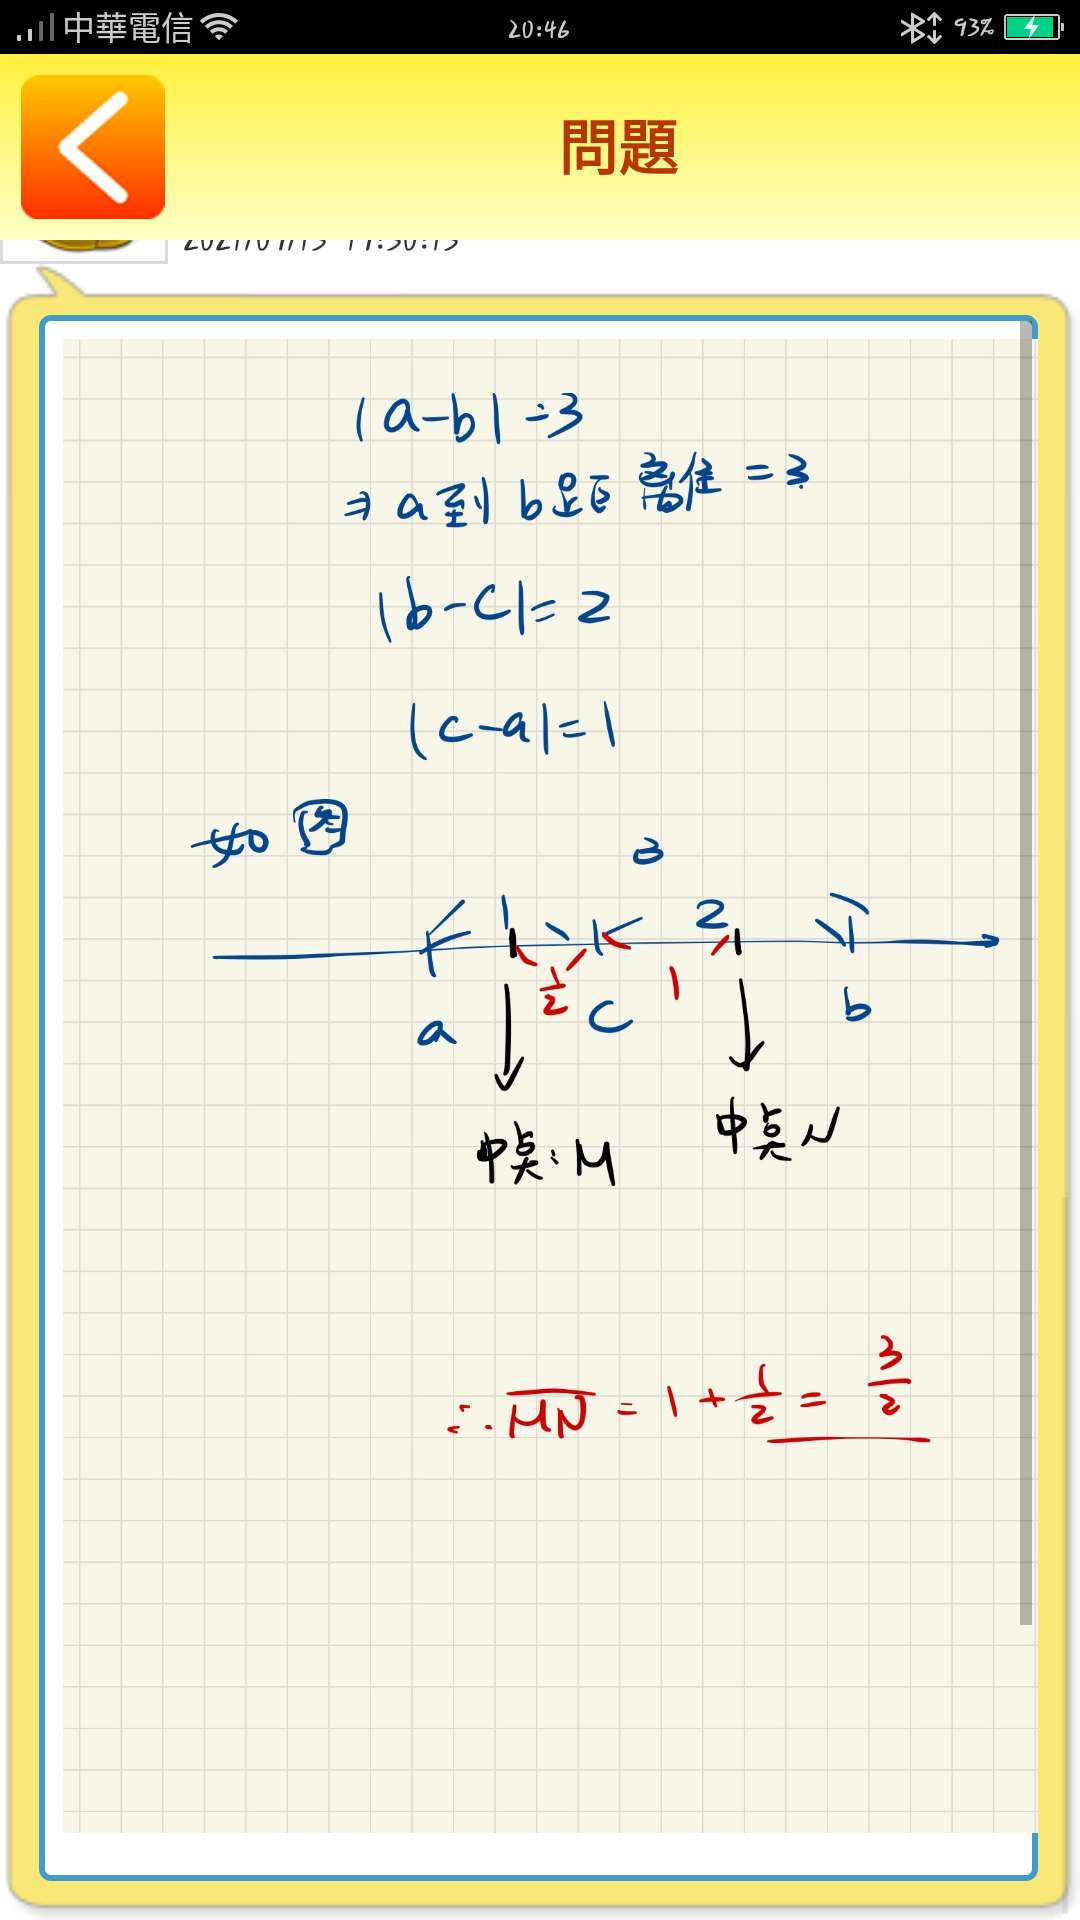 中華電信 20:46 93%
問題
|a-b|=3
⇒ a到b距離=3
|b-c|=2
|c-a|=1
如圖
3
1 2
1/2 1
a c b
中點:M 中點N
∴ MN = 1 + 1/2 = 3/2